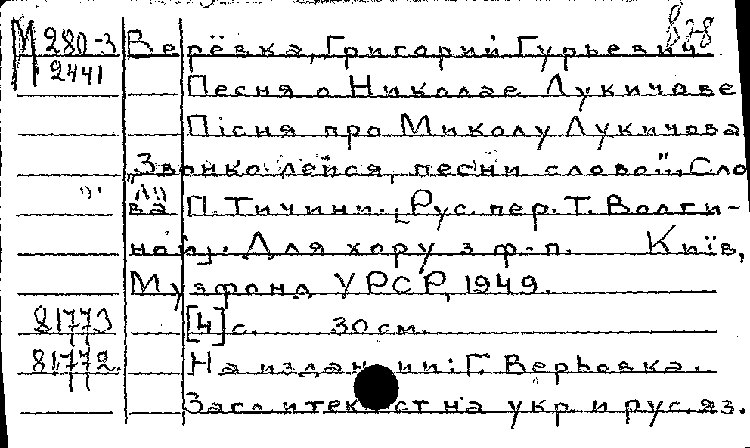 М 280-3 2441 Верёвка, Григорий Гурьевич 828
Песня о Николае Лукичове
Пісня про Миколу Лукичова
"Звонко лейся, песни слово". Сло
ва П. Тичини. [Рус. пер. Т. Волги-
ной]. Для хору з ф-п. Київ,
Музфонд УРСР, 1949.
81773 [4] с. 30 см.
81772 На издании: Г. Верьовка.
Загл. и текст на укр. и рус. яз.